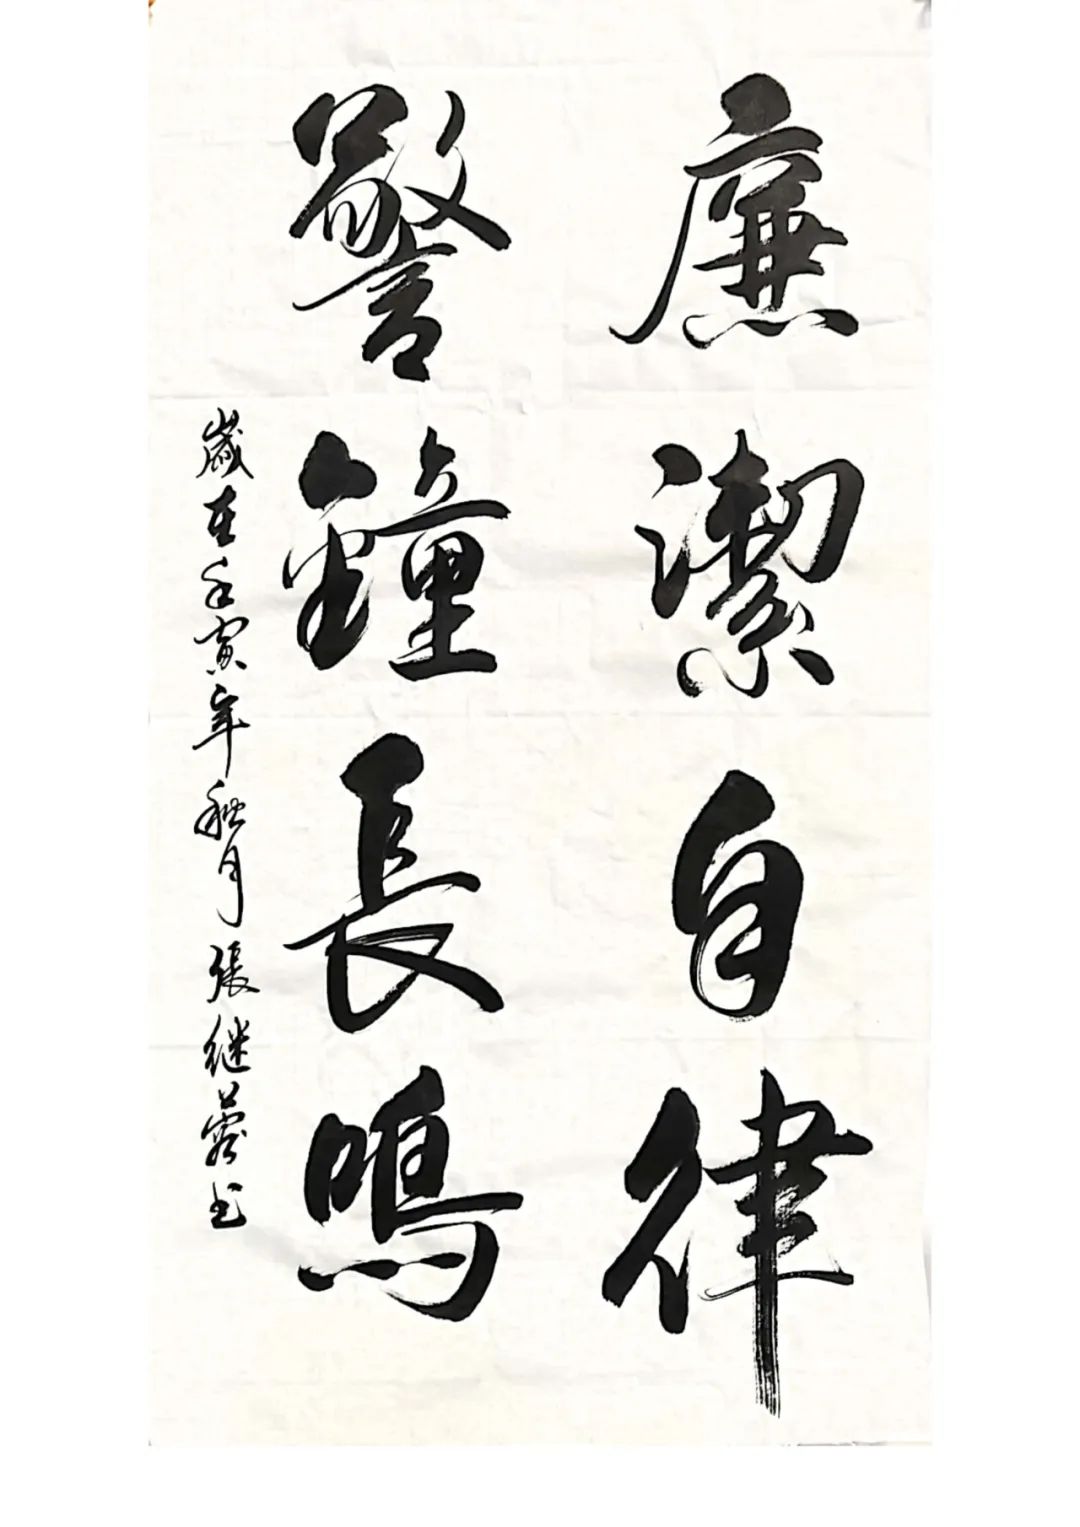 廉潔自律
警鐘長鳴
歲在壬寅年秋月張继蓉书